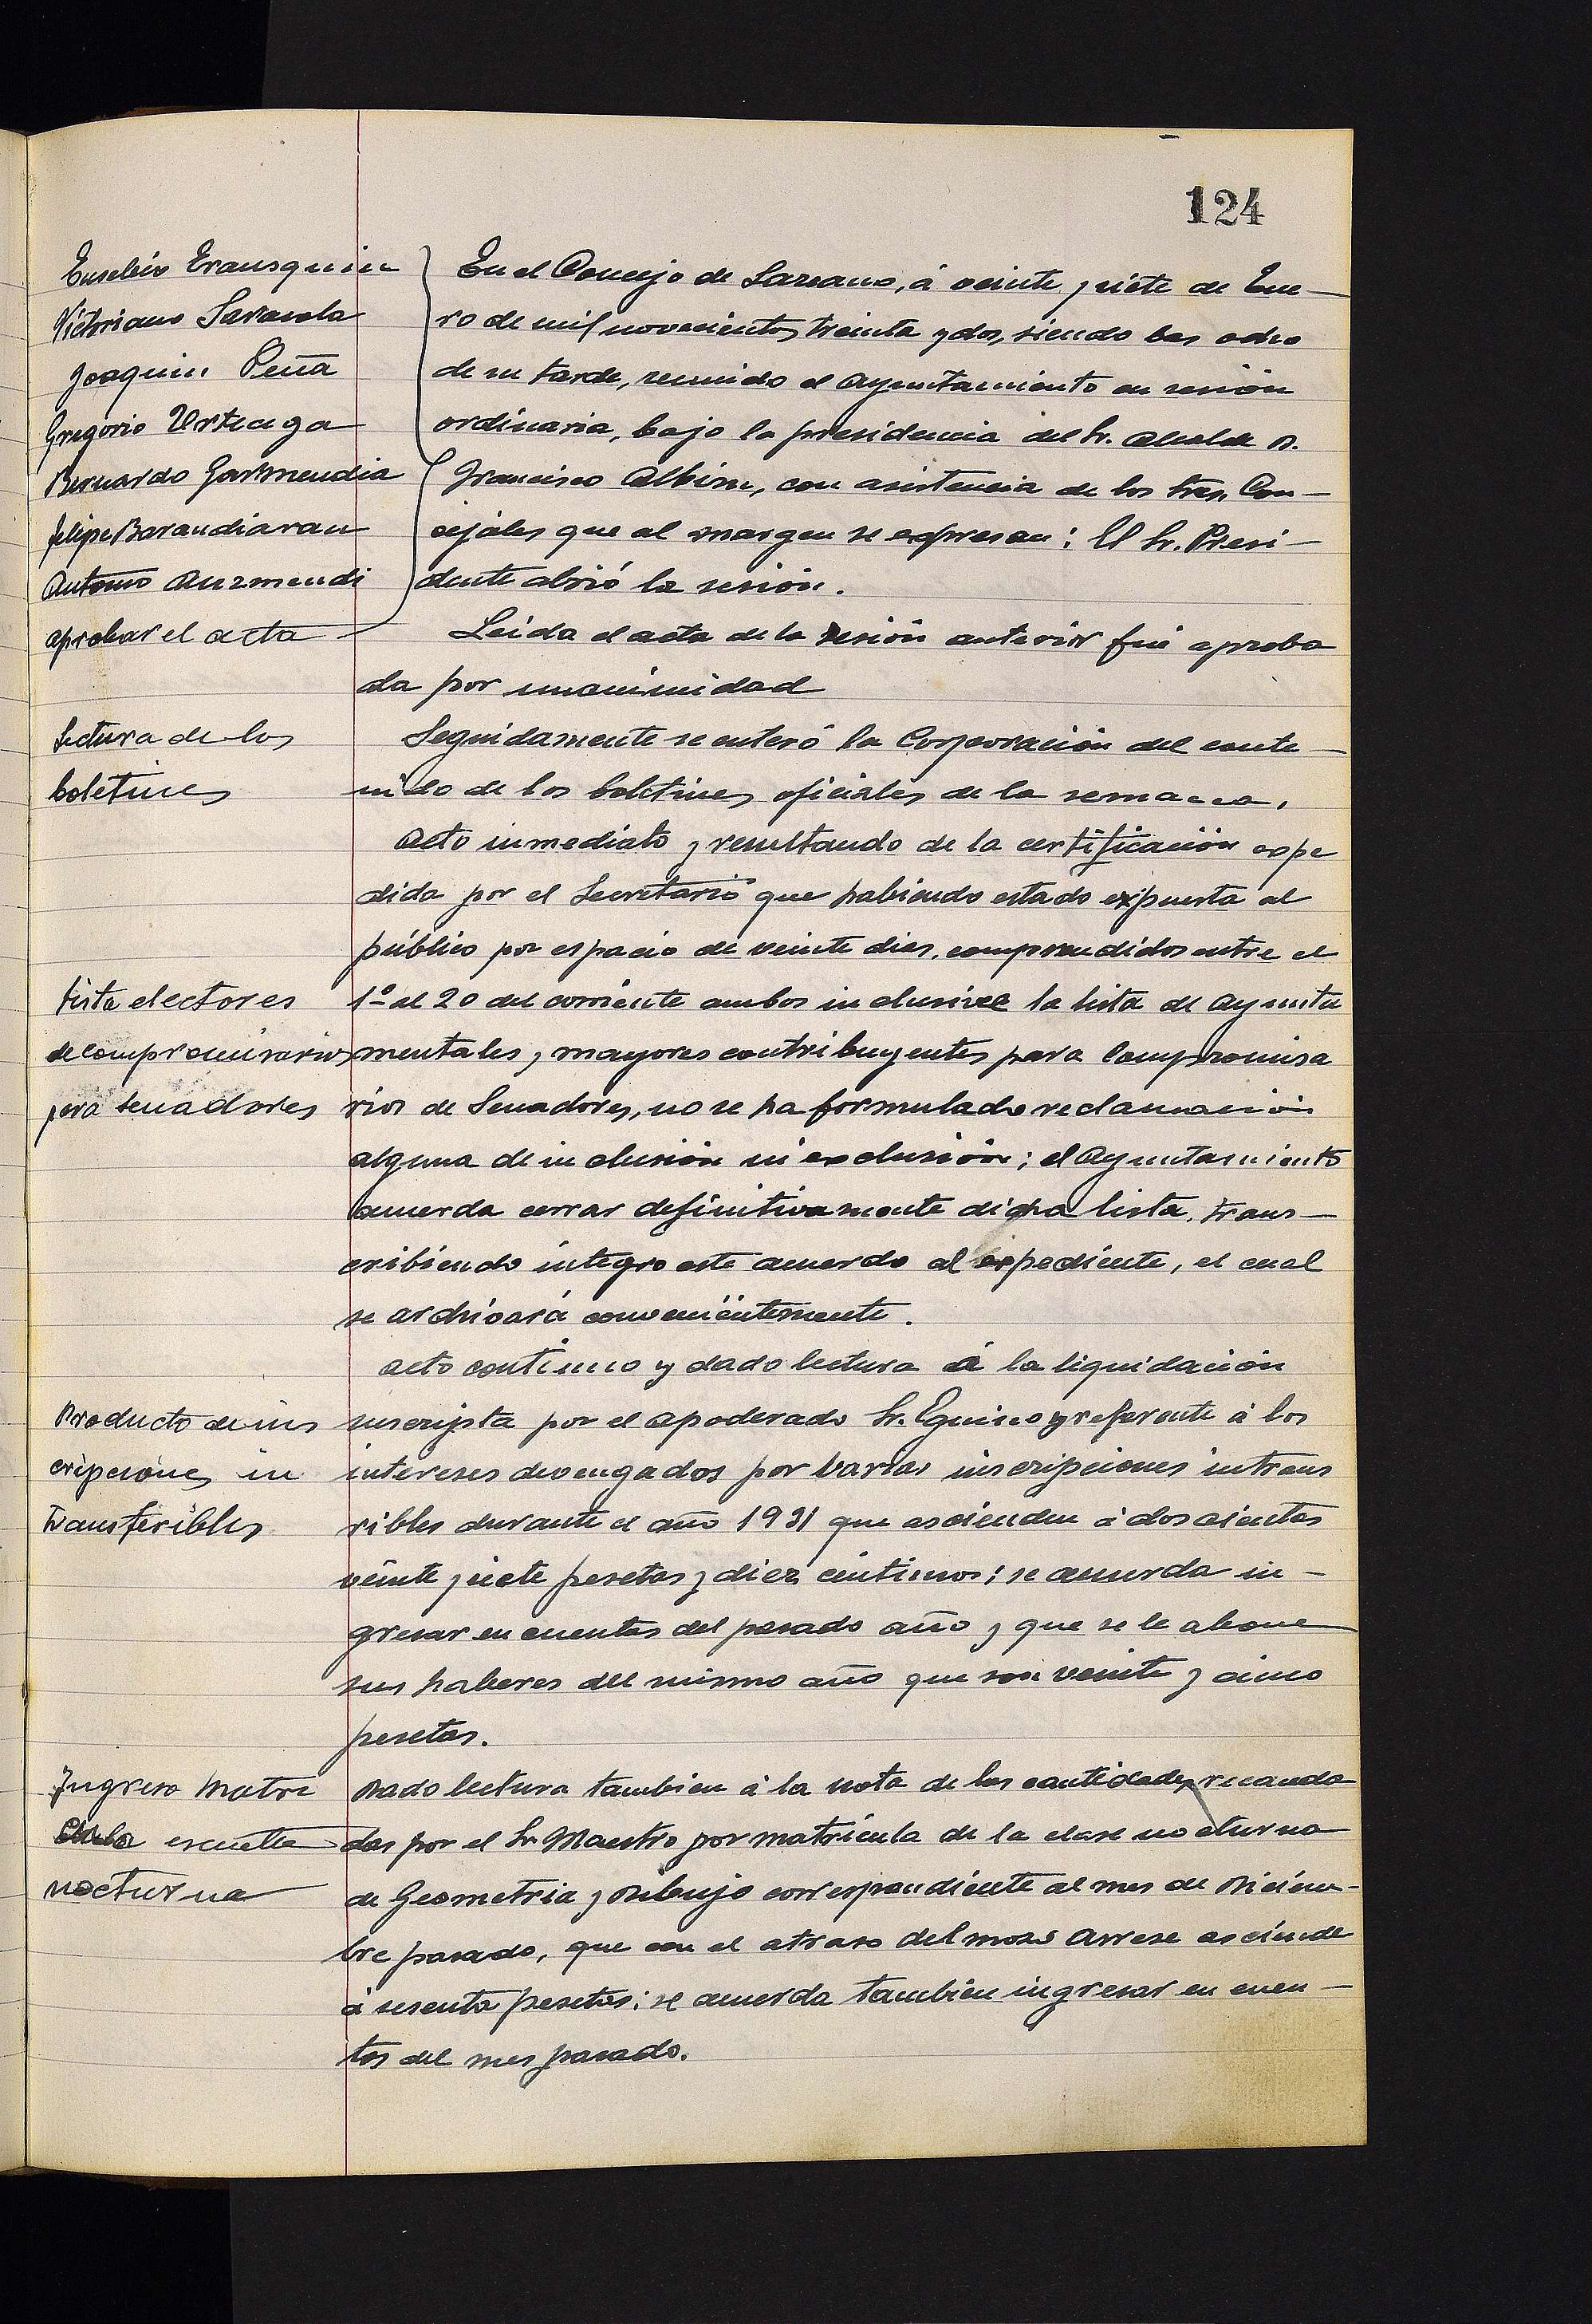 124
Eusebio Erausquin
Victoriano Sarasola
Joaquin Peña
Gregorio Urteaga
Bernardo Garmendia
Felipe Barandiaran
Antonio Auzmendi
aprobar el acta
En el Concejo de Lazcano, á veinte y siete de Ene-
ro de mil novecientos treinta y dos, siendo las ocho
de su tarde, reunido el Ayuntamiento en sesión
ordinaria, bajo la presidencia del Sr. Alcalde D.
Francisco Albisu, con asistencia de los Sres. Con-
cejales que al margen se expresan: El Sr. Presi-
dente abrió la sesión.
Leida el acta de la sesión anterior fué aproba
da por unanimidad
Lectura de los
boletines
Seguidamente se enteró la Corporación del conte-
nido de los boletines oficiales de la semana.
Acto inmediato y resultando de la certificación expe
dida por el Secretario que habiendo estado expuesta al
público por espacio de veinte dias, comprendidos entre el
lista electores
de compromisarios
para senadores
1º al 20 del corriente ambos inclusive la lista de Ayunta
mentales y mayores contribuyentes para Compromisa
rios de Senadores, no se ha formulado reclamación
alguna de inclusión ni exclusión; el Ayuntamiento
acuerda cerrar definitivamente dicha lista, trans-
cribiendo integro este acuerdo al expediente, el cual
se archivará convenientemente.
Acto continuo y dado lectura á la liquidación
Producto de ins
cripciones in
transferibles
suscripta por el apoderado Sr. Eguino y referente á los
intereses devengados por varias inscripciones intrans
ribles durante el año 1931 que ascienden á doscientas
veinte y siete pesetas y diez céntimos; se acuerda in-
gresar en cuentas del pasado año y que se le abone
sus haberes del mismo año que son veinte y cinco
pesetas.
Ingreso Matri
escuela
nocturna
Dado lectura tambien á la nota de las cantidades recauda
das por el Sr. Maestro por matrícula de la clase nocturna
de Geometria y Dibujo correspondiente al mes de Diciem-
bre pasado, que con el atraso del mozo Arrese asciende
á sesenta pesetas: se acuerda tambien ingresar en cuen-
tas del mes pasado.